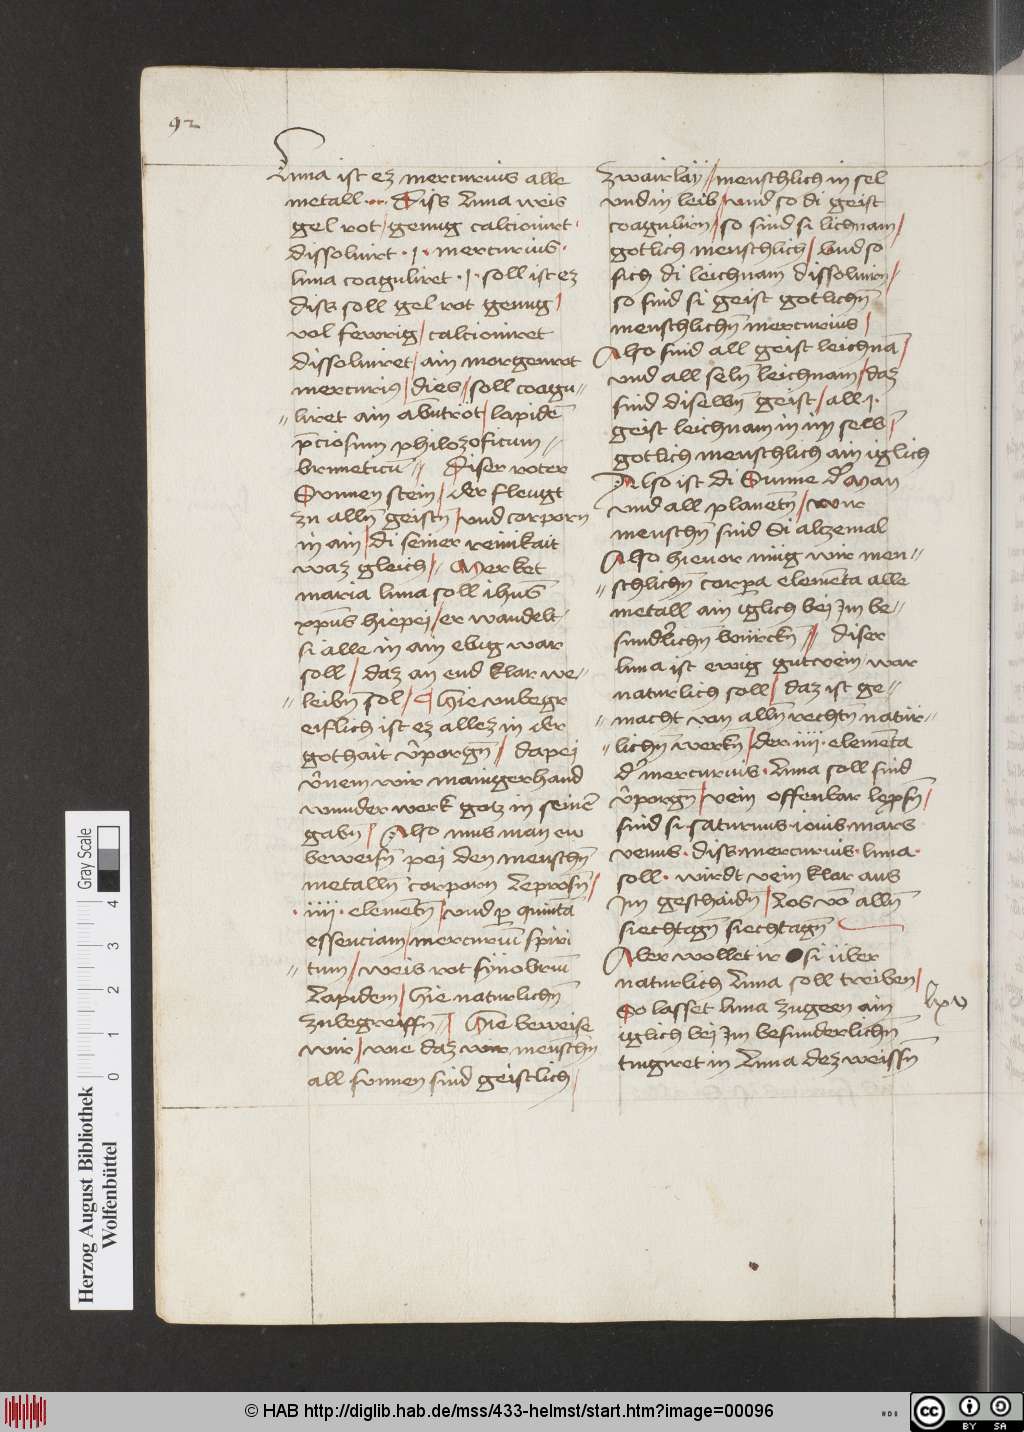 92
Luna ist ez mercurius alle
metall · Diss Luna weis
gel rot / genug calcionirt ·
dissoluirt · j · mercurius ·
luna coaguliret · j · soll ist ez
diss soll gel rot genug /
vol fewrig / calcioniret
dissoluiret / ain morgenrot
mercuriꝯ / dies // soll coagu //
// liret ain abntröt / lapidē
p̄ciosum philozoficum //
brmeticū // Diser roter
Sunnen stein / der fleugt
zu alln̄ geistn̄ / vnd corporn
in ain / di seiner reinikait
waz gleich // Merket
maria luna soll ihūs
xp̄us hiepei / er wandelt
si alle in ain ebig war
soll / daz an end klar we //
// leibn̄ sol / ¶ Hie vnbegr
eiflich ist ez allez in der
gothait v̄porgn̄ // dapei
v̄nem wir manigerhand
wunder werk gotz in seinē
gabn / Also mus man ew
beweisn̄ pei den menschn̄
metalln̄ corporn Leprosn̄ /
· iiij · elemētn̄ / vnd p̱ quintā
essenciam / mercuriū spiri
// tum / weis rot
Lapidem / hie naturlichn̄
zubegreiffn̄ // Hie beweise
wir / wie daz wir menschn̄
all sunnen sind geistlich /
zwairlay // menschlich in sel
vnd in leib / vnd so di geist
coagulirn / so sind si lichnam /
gotlich menschlich / vnd so
sich di leichnam dissoluirn /
so sind si geist gotlichn̄
menschlichn̄ mercurius /
Also sind all geist leichnā /
vnd all seln̄ leichnam / daz
sind diselbn̄ geist / all j ·
geist leichnam in im selb̄ /
gotlich menschlich ain iglich
Also ist di Sunne dʼ Man
vnd all planetn̄ / wir
menschn̄ sind Si alzemal
Also hieuor müg wir men //
// schlichn̄ corp̱a elemēta alle
metall ain iglich bei Im be //
sundʼlichn̄ würckn̄ // diser
luna ist ewig gut vein war
naturlich soll / daz ist ge //
// macht van alln̄ rechtn̄ natür //
// lichn̄ werkn̄ / der iiij · elemēta
dʼ mercurius · Luna soll sind
v̄porgn̄ / vein offenbar lep̱sn̄ /
sind si saturnus · iouis · mars ·
venus · diss · mercurius · luna ·
soll · wirdt vein klar aus
Im geschaidn̄ / Los vō alln̄
siechtagn̄ siechtagn̄
Aber wollet ir si über
naturlich Luna soll treiben /
So lasset luna zugeen ain
iglich bei Im besunderlichn̄
tingiret in Luna dez weissn̄
lxv
Herzog August Bibliothek
Wolfenbüttel
Gray Scale
0 1 2 3 4
© HAB http://diglib.hab.de/mss/433-helmst/start.htm?image=00096
cc BY SA